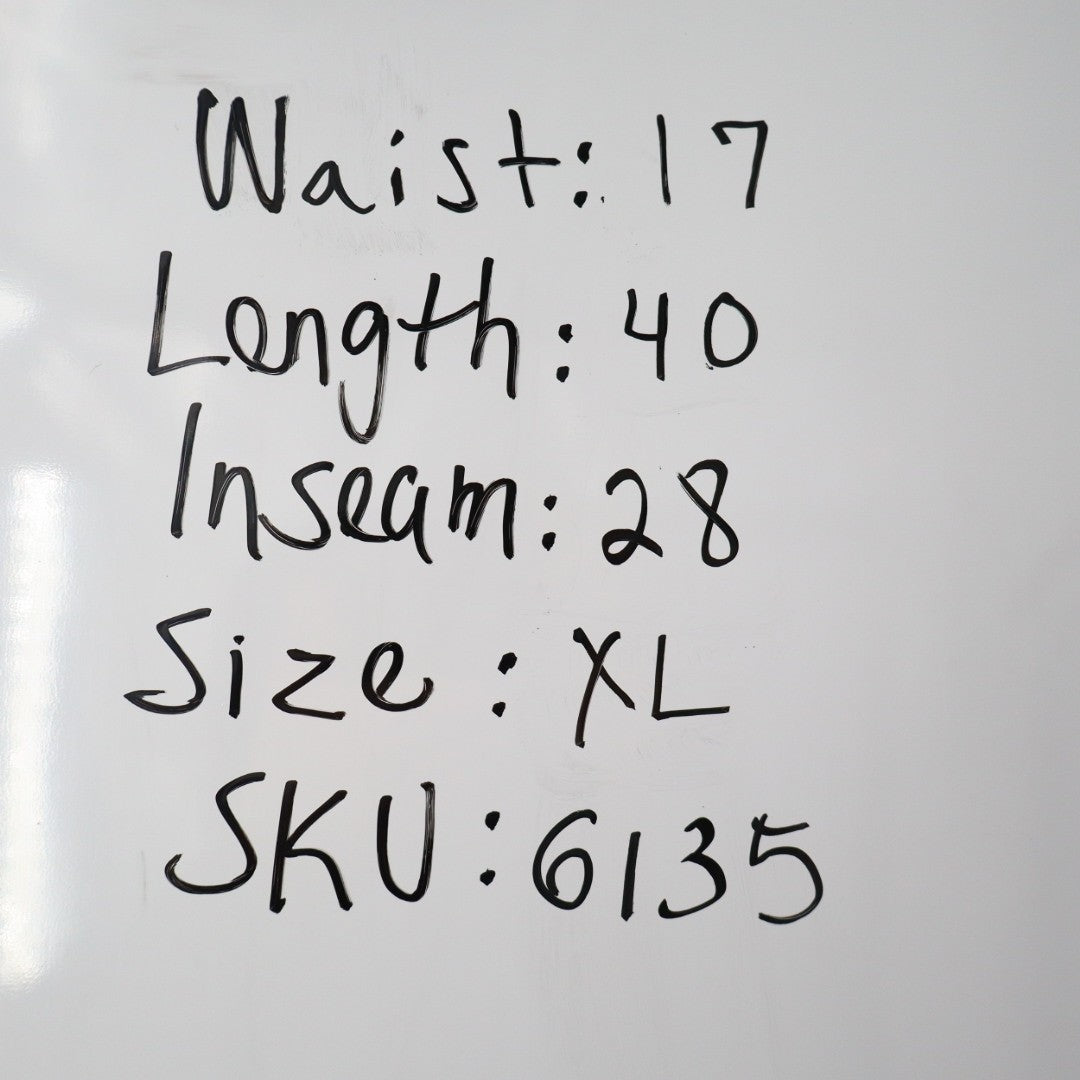 Waist: 17
Length: 40
Inseam: 28
Size: XL
SKU: 6135